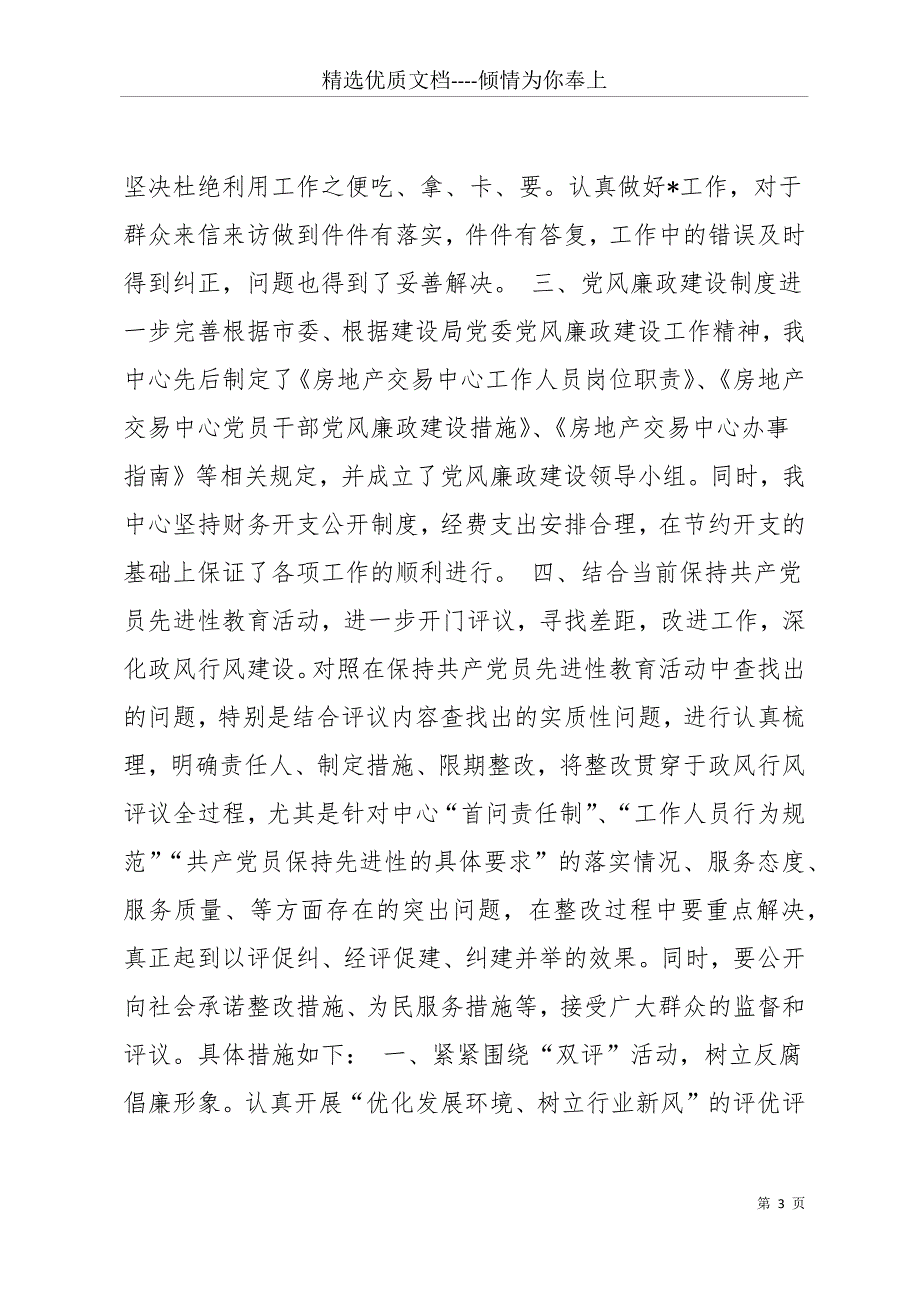 精选优质文档----倾情为你奉上
坚决杜绝利用工作之便吃、拿、卡、要。认真做好*工作，对于
群众来信来访做到件件有落实，件件有答复，工作中的错误及时
得到纠正，问题也得到了妥善解决。 三、党风廉政建设制度进
一步完善根据市委、根据建设局党委党风廉政建设工作精神，我
中心先后制定了《房地产交易中心工作人员岗位职责》、《房地产
交易中心党员干部党风廉政建设措施》、《房地产交易中心办事
指南》等相关规定，并成立了党风廉政建设领导小组。同时，我
中心坚持财务开支公开制度，经费支出安排合理，在节约开支的
基础上保证了各项工作的顺利进行。 四、结合当前保持共产党
员先进性教育活动，进一步开门评议，寻找差距，改进工作，深
化政风行风建设。对照在保持共产党员先进性教育活动中查找出
的问题，特别是结合评议内容查找出的实质性问题，进行认真梳
理，明确责任人、制定措施、限期整改，将整改贯穿于政风行风
评议全过程，尤其是针对中心“首问责任制”、“工作人员行为规
范”“共产党员保持先进性的具体要求”的落实情况、服务态度、
服务质量、等方面存在的突出问题，在整改过程中要重点解决，
真正起到以评促纠、经评促建、纠建并举的效果。同时，要公开
向社会承诺整改措施、为民服务措施等，接受广大群众的监督和
评议。具体措施如下： 一、紧紧围绕“双评”活动，树立反腐
倡廉形象。认真开展“优化发展环境、树立行业新风”的评优评
第 3 页